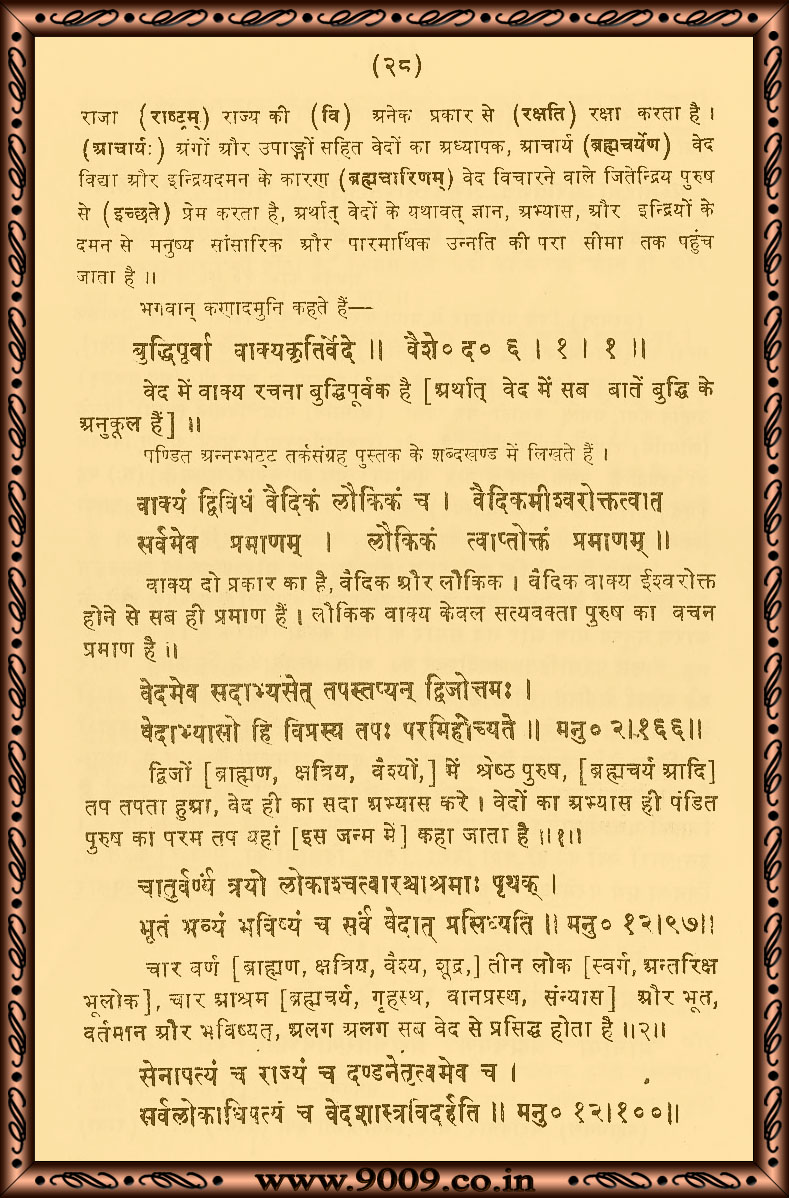 (२८)
राजा (राष्ट्रम्) राज्य की (वि) अनेक प्रकार से (रक्षति) रक्षा करता है ।
(आचार्यः) अंगों और उपाङ्गों सहित वेदों का अध्यापक, आचार्य (ब्रह्मचर्येण) वेद
विद्या और इन्द्रियदमन के कारण (ब्रह्मचारिणम्) वेद विचारने वाले जितेन्द्रिय पुरुष
से (इच्छते) प्रेम करता है, अर्थात् वेदों के यथावत् ज्ञान, अभ्यास, और इन्द्रियों के
दमन से मनुष्य सांसारिक और पारमार्थिक उन्नति की परा सीमा तक पहुंच
जाता है ॥
भगवान् कणादमुनि कहते हैं—
बुद्धिपूर्वा वाक्यकृतिर्वेदे ॥ वैशे० द० ६ । १ । १ ॥
वेद में वाक्य रचना बुद्धिपूर्वक है [अर्थात् वेद में सब बातें बुद्धि के
अनुकूल हैं] ॥
पण्डित अन्नम्भट्ट तर्कसंग्रह पुस्तक के शब्दखण्ड में लिखते हैं ।
वाक्यं द्विविधं वैदिकं लौकिकं च । वैदिकमीश्वरोक्तत्वात
सर्वमेव प्रमाणम् । लौकिकं त्वाप्तोक्तं प्रमाणम् ॥
वाक्य दो प्रकार का है, वैदिक और लौकिक । वैदिक वाक्य ईश्वरोक्त
होने से सब ही प्रमाण हैं । लौकिक वाक्य केवल सत्यवक्ता पुरुष का वचन
प्रमाण है ॥
वेदमेव सदाभ्यसेत् तपस्तप्यन् द्विजोत्तमः ।
वेदाभ्यासो हि विप्रस्य तपः परमिहोच्यते ॥ मनु० २।१६६॥
द्विजों [ब्राह्मण, क्षत्रिय, वैश्यों,] में श्रेष्ठ पुरुष, [ब्रह्मचर्य आदि]
तप तपता हुआ, वेद ही का सदा अभ्यास करे । वेदों का अभ्यास ही पंडित
पुरुष का परम तप यहां [इस जन्म में] कहा जाता है ॥१॥
चातुर्वर्ण्यं त्रयो लोकाश्चत्वारश्चाश्रमाः पृथक् ।
भूतं भव्यं भविष्यं च सर्वं वेदात् प्रसिध्यति ॥ मनु० १२।९७॥
चार वर्ण [ब्राह्मण, क्षत्रिय, वैश्य, शूद्र,] तीन लोक [स्वर्ग, अन्तरिक्ष
भूलोक], चार आश्रम [ब्रह्मचर्य, गृहस्थ, वानप्रस्थ, संन्यास] और भूत,
वर्तमान और भविष्यत्, अलग अलग सब वेद से प्रसिद्ध होता है ॥२॥
सेनापत्यं च राज्यं च दण्डनेतृत्वमेव च ।
सर्वलोकाधिपत्यं च वेदशास्त्रविदर्हति ॥ मनु० १२।१००॥
www.9009.co.in